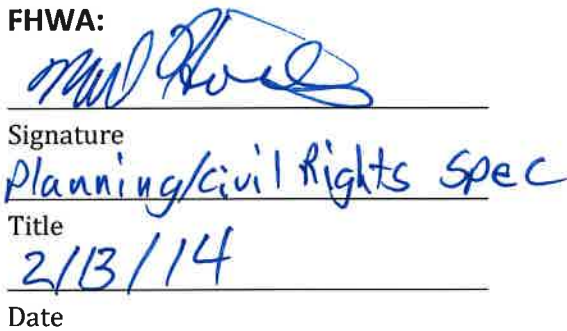 FHWA:
Signature
Planning/Civil Rights Spec
Title
2/13/14
Date